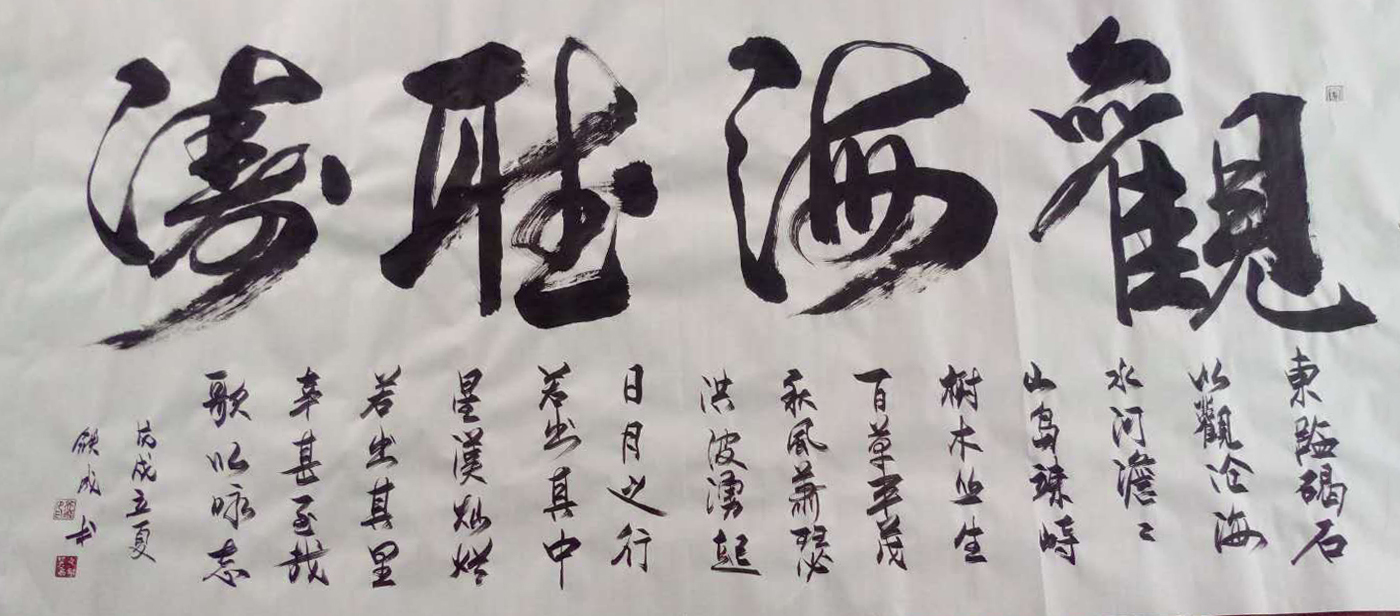 觀海聽濤
東臨碣石
以觀滄海
水河澹〻
山島竦峙
樹木丛生
百草丰茂
秋風蕭瑟
洪波湧起
日月之行
若出其中
星漢灿烂
若出其里
幸甚至哉
歌以咏志
丙戌立夏
鐵成书